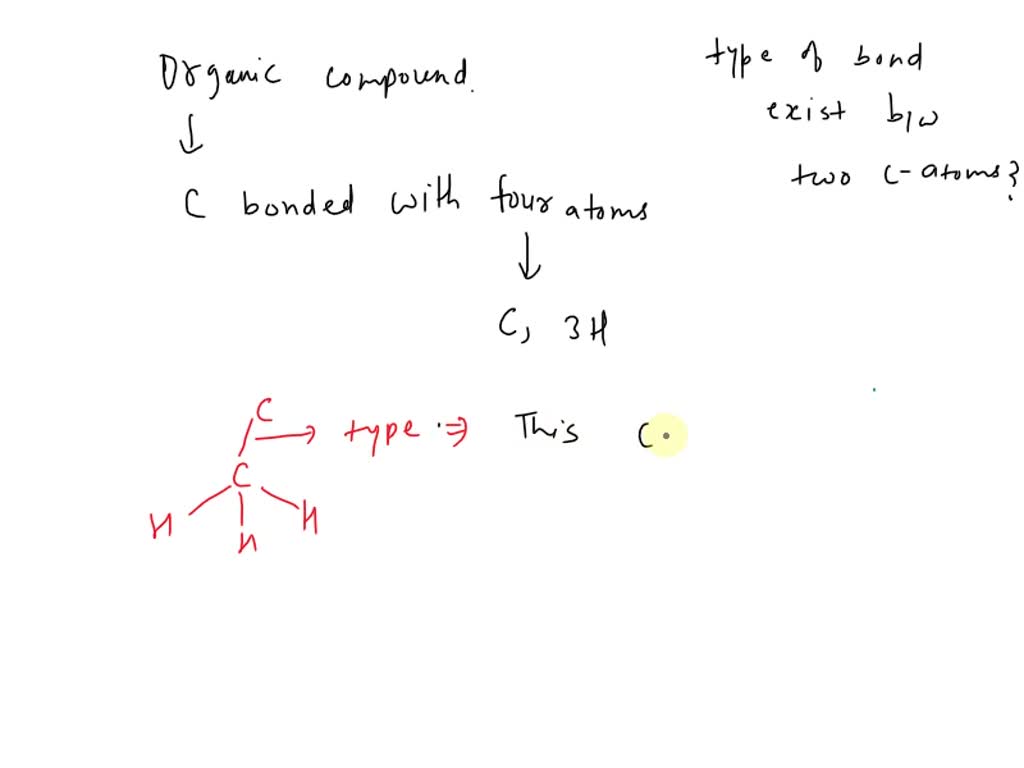 Organic compound.
type of bond
exist b/w
two C-atoms?
C bonded with four atoms
C, 3H
C
type ⇒ This C
C
H H
H